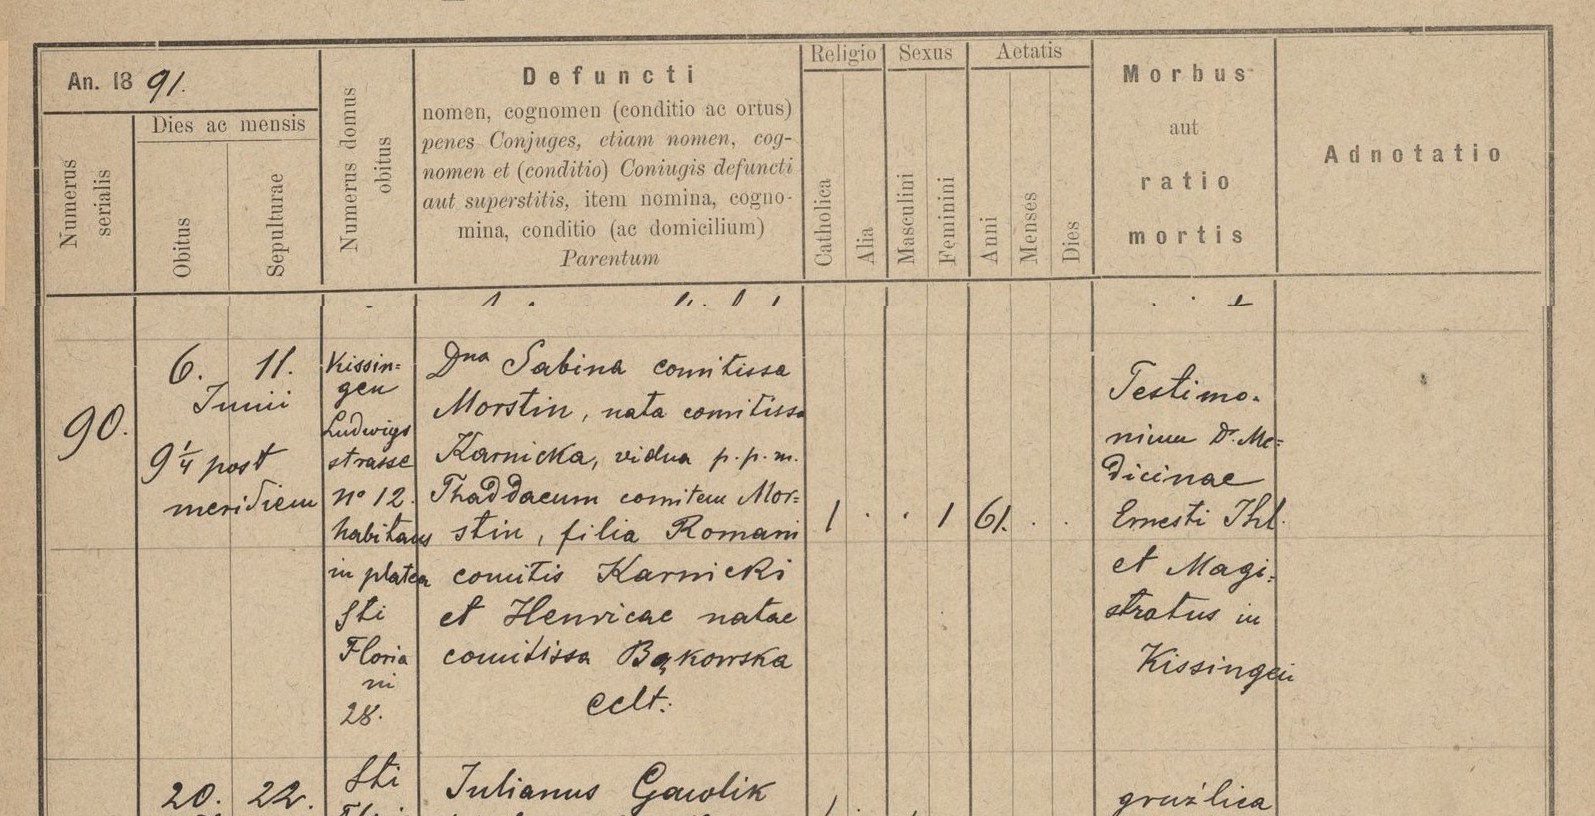 An. 18 91.
Dies ac mensis
Numerus serialis
Obitus
Sepulturae
Numerus domus obitus
Defuncti
nomen, cognomen (conditio ac ortus)
penes Conjuges, etiam nomen, cog-
nomen et (conditio) Coniugis defuncti
aut superstitis, item nomina, cogno-
mina, conditio (ac domicilium)
Parentum
Religio
Catholica
Alia
Sexus
Masculini
Feminini
Aetatis
Anni
Menses
Dies
Morbus
aut
ratio
mortis
Adnotatio
90.
6. 11.
Junii
9 1/4 post
meridiem
Kissin=
gen
Ludwigs
strasse
no 12.
habitans
in platea
Sti
Floria
ni
28.
Dna Sabina comitissa
Morstin, nata comitissa
Karnicka, vidua p. p. m.
Thaddaeum comitem Mor=
stin, filia Romani
comitis Karnicki
et Henricae natae
comitissa Bąkowska
cclt:
1 . . 1 61. . .
Testimo-
nium Dr. Me=
dicinae
Ernesti Ihl.
et Magi=
stratus in
Kissingen
20. 22.
Sti
Julianus Gawlik
gruźlica